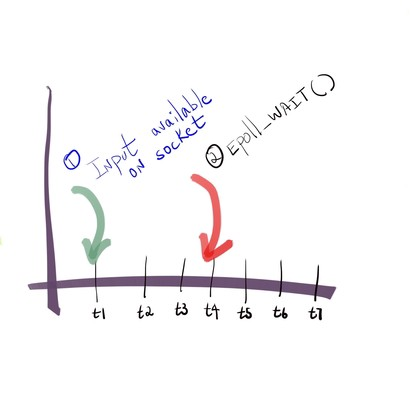 ① Input available
on socket
② Epoll_WAIT()
t1 t2 t3 t4 t5 t6 t7